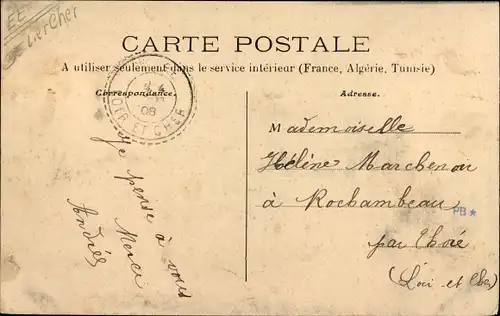 EE
CARTE POSTALE
A utiliser seulement dans le service intérieur (France, Algérie, Tunisie)
Correspondance.
Adresse.
08
LOIR ET CHER
Mademoiselle
Hélène Marchenou
à Rochambeau
par Thoré
(Loir et Cher)
PB
Je pense à vous
Merci
Andrés